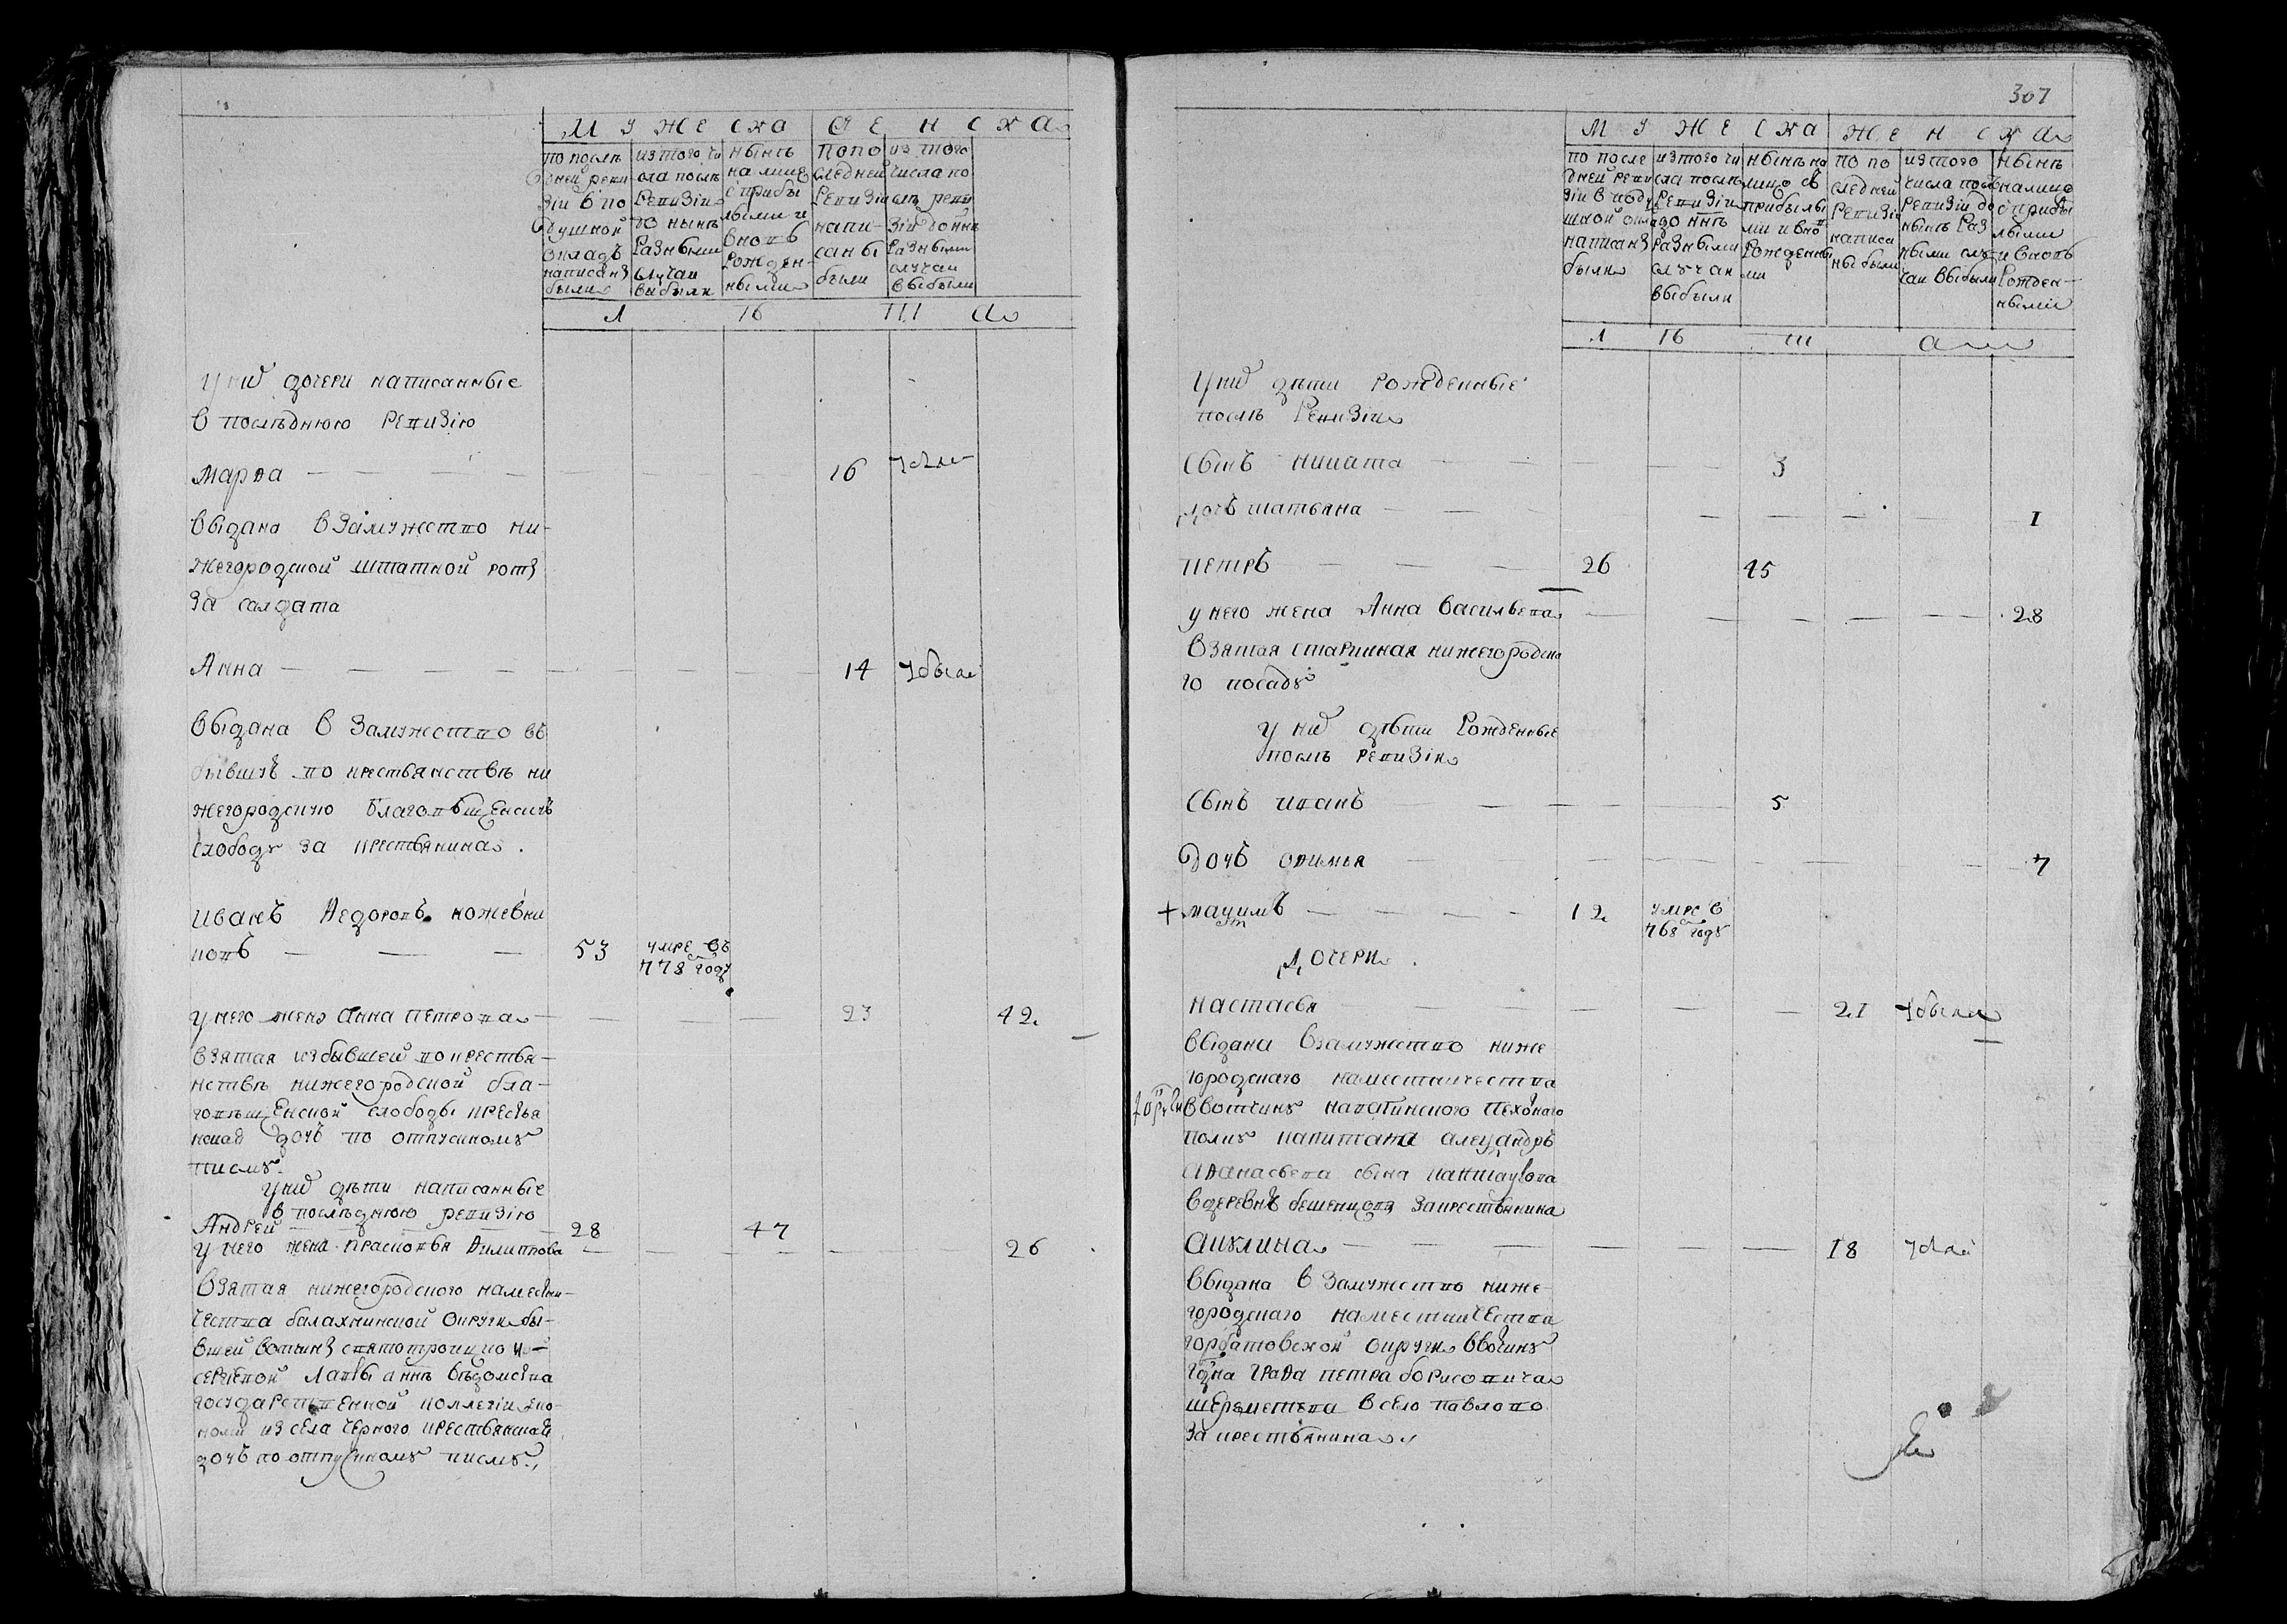 МУЖЕСКА ЖЕНСКА
по послѣдней ревизiи в подушной окладъ написаны были
из того числа послѣ ревизiи до нынѣ разными случаи выбыли
нынѣ на лицо с прибылыми и вновь рожденными
по последней ревизiи написаны были
из того числа по слѣ ревизiи до нынѣ разными случаи выбыли
Л Ѣ Т А
у них дочери написанные
в последнюю ревизiю
марѳа 16 убыла
выдана в замужество ни-
жегородской штатной роты
за салдата
Анна 14 убыла
выдана в замужество въ
бывшую по крестьянствѣ ни
жегородскую благовѣщенскую
слободу за крестьянина.
иванъ Ѳедоровъ кожевни
ковъ 53 умре въ 778 году
у него жена анна петрова 23 42
взятая из бывшей по крестья-
нствѣ нижегородской бла-
говѣщенской слободы крестья
нская дочь по отпускному
писму.
у них дѣти написанные
в последнюю ревизiю
Андрей 28 47
у него жена прасковья Ѳилиппова 26
взятая нижегородского намесни-
чества балахнинской округи бы-
вшей вотчины святотроицко
сергiевой лавры а ннѣ вѣдомства
государственной коллегiи эко-
номи из села черного крестьянская
дочь по отпускному писму.
307
МУЖЕСКА ЖЕНСКА
по последней ревизiи в подушной окладъ написаны были
из того числа послѣ ревизiи до ннѣ разными случаи выбыли
нынѣ на лицо съ прибылыми и вновь рожденными
по последней ревизiи написаны были
из того числа послѣ ревизiи до нынѣ разными случаи выбыли
нынѣ на лицо с прибылыми и вновь рожденными
Л Ѣ Т А
у них дѣти рожденные
послѣ ревизiи
сынъ никита 3
дочь татьяна 1
петръ 26 45
у него жена Анна васильева 28
взятая старинная нижегородска
го посаду
у них дѣти рожденные
послѣ ревизiи
сынъ иванъ 5
дочь ѳимья 7
+ маѯимъ 12 умре в 768 году
дочери
настасья 21 убыла
выдана в замужество ниже
городскаго наместничества
в вотчину пехонаго
полку капитана алеѯандра
аѳанасьева сына
в деревнѣ за крестьянина
акулина 18 убыла
выдана в замужество ниже-
городскаго наместничества
горбатовской округи в вотчину
гдна граѳа петра борисовича
шереметева в село павлово
за крестьянина